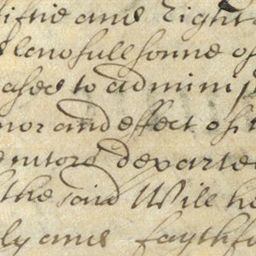 fiftie and Eight
lawfull sonne of
ased to adminis
nor and effect of t
ecutors departe
the said Will he
ly and faythfu